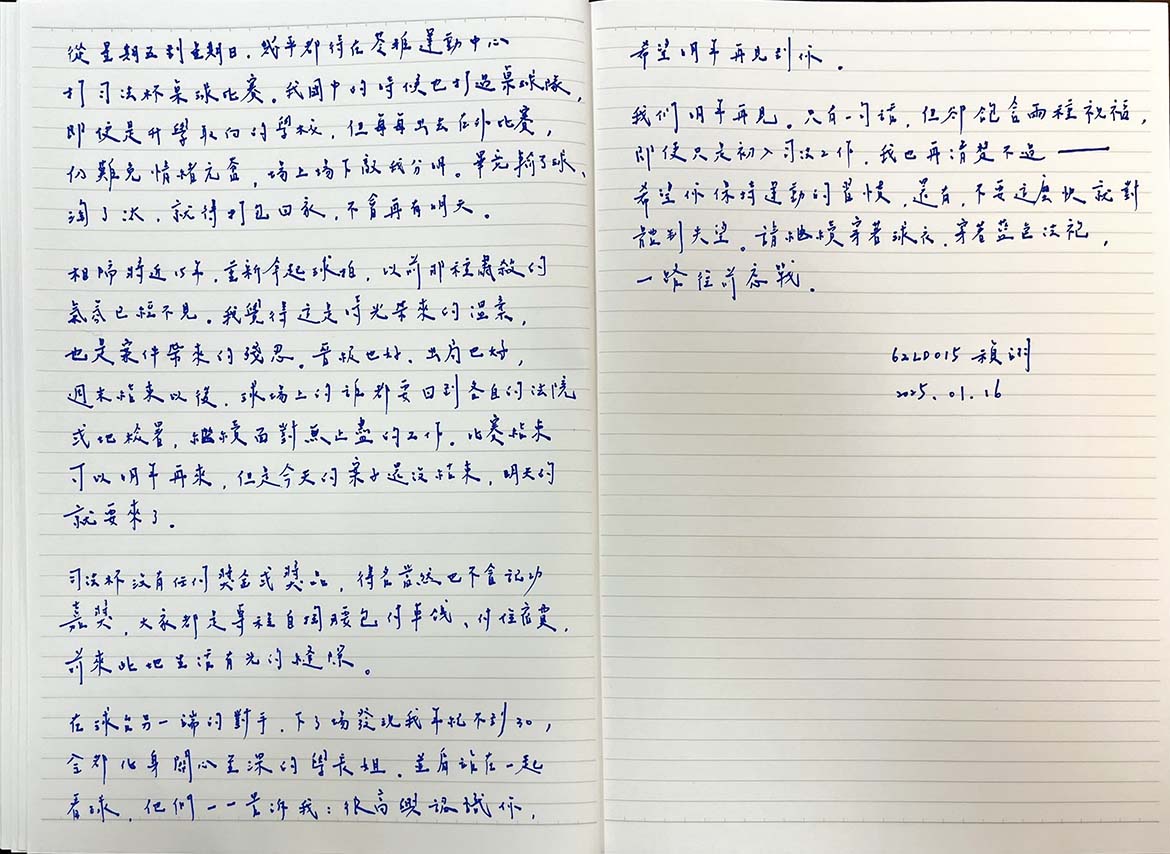 從星期五到星期日，幾乎都待在苓雅運動中心
打司法杯桌球比賽。我國中的時候也打過桌球隊，
即使是升學取向的學校，但每每出去在外比賽，
仍難免情緒亢奮，場上場下敵我分明。畢竟輸了球、
淘了汰，就得打包回家，不會再有明天。
相隔將近15年，重新拿起球拍，以前那種肅殺的
氣氛已經不見。我覺得這是時光帶來的溫柔，
也是案件帶來的殘忍。晉級也好、出局也好，
週末結束以後，球場上的誰都要回到各自的法院
或地檢署，繼續面對無止盡的工作。比賽結束
可以明年再來，但是今天的案子還沒結束，明天的
就要來了。
司法杯沒有任何獎金或獎品，得名當然也不會記功
嘉獎，大家都是專程自掏腰包付車錢、付住宿費，
前來此地生活有光的縫隙。
在球台另一端的對手，下了場發現我年紀不到30，
全都化身關心至深的學長姐，並肩站在一起
看球，他們一一告訴我：很高興認識你，
希望明年再見到你。
我們明年再見。只有一句話，但卻飽含兩種祝福，
即使只是初入司法工作，我也再清楚不過——
希望你保持運動的習慣，還有，不要這麼快就對
體制失望。請繼續穿著球衣、穿著藍色法袍，
一路往前應戰。
62LD015 穎羽
2025.01.16